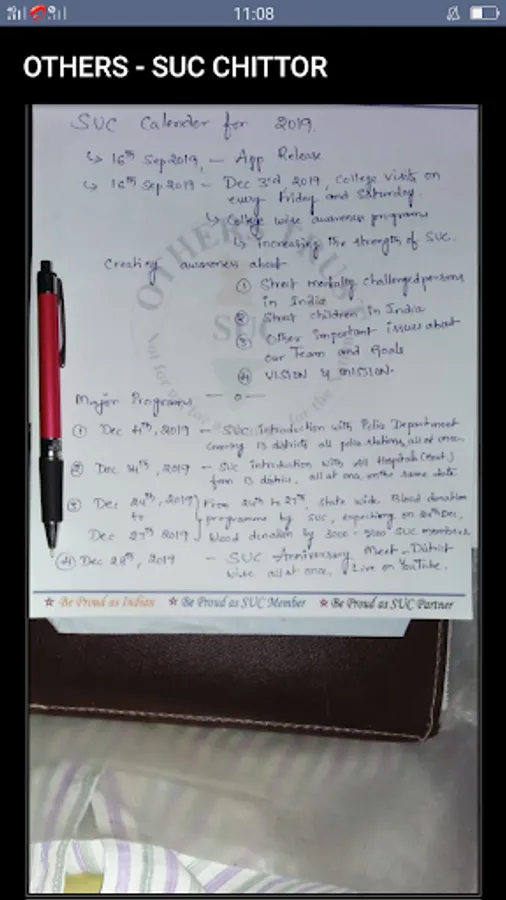 11:08
OTHERS - SUC CHITTOR
SUC Calender for 2019.
↳ 16th Sep 2019, — App Release
↳ 16th Sep 2019 — Dec 3rd 2019, College visits on
every Friday and Saturday.
↳ College wise awareness programs
↳ increasing the strength of SUC.
Creating awareness about
① Street mentally challenged persons
in India
② Street children in India
③ Other important issues about
our Team and Goals
④ VISION & MISSION.
Major Programs — o —
① Dec 4th, 2019 — SUC introduction with Police Department
13 districts all police stations, all at once.
② Dec 14th, 2019 — SUC introduction with All Hospitals (Govt.)
from 13 districts, all at once on the same date
③ Dec 24th, 2019 From 24th to 27th, State wide Blood donation
to programme by SUC, expecting on
Dec 27th 2019 blood donation by 3000 - 5000 SUC members.
④ Dec 28th, 2019 — SUC Anniversary Meet - District
wise all at once, Live on YouTube.
OTHERS TRUST
SUC
★ Be Proud as Indian ★ Be Proud as SUC Member ★ Be Proud as SUC Partner